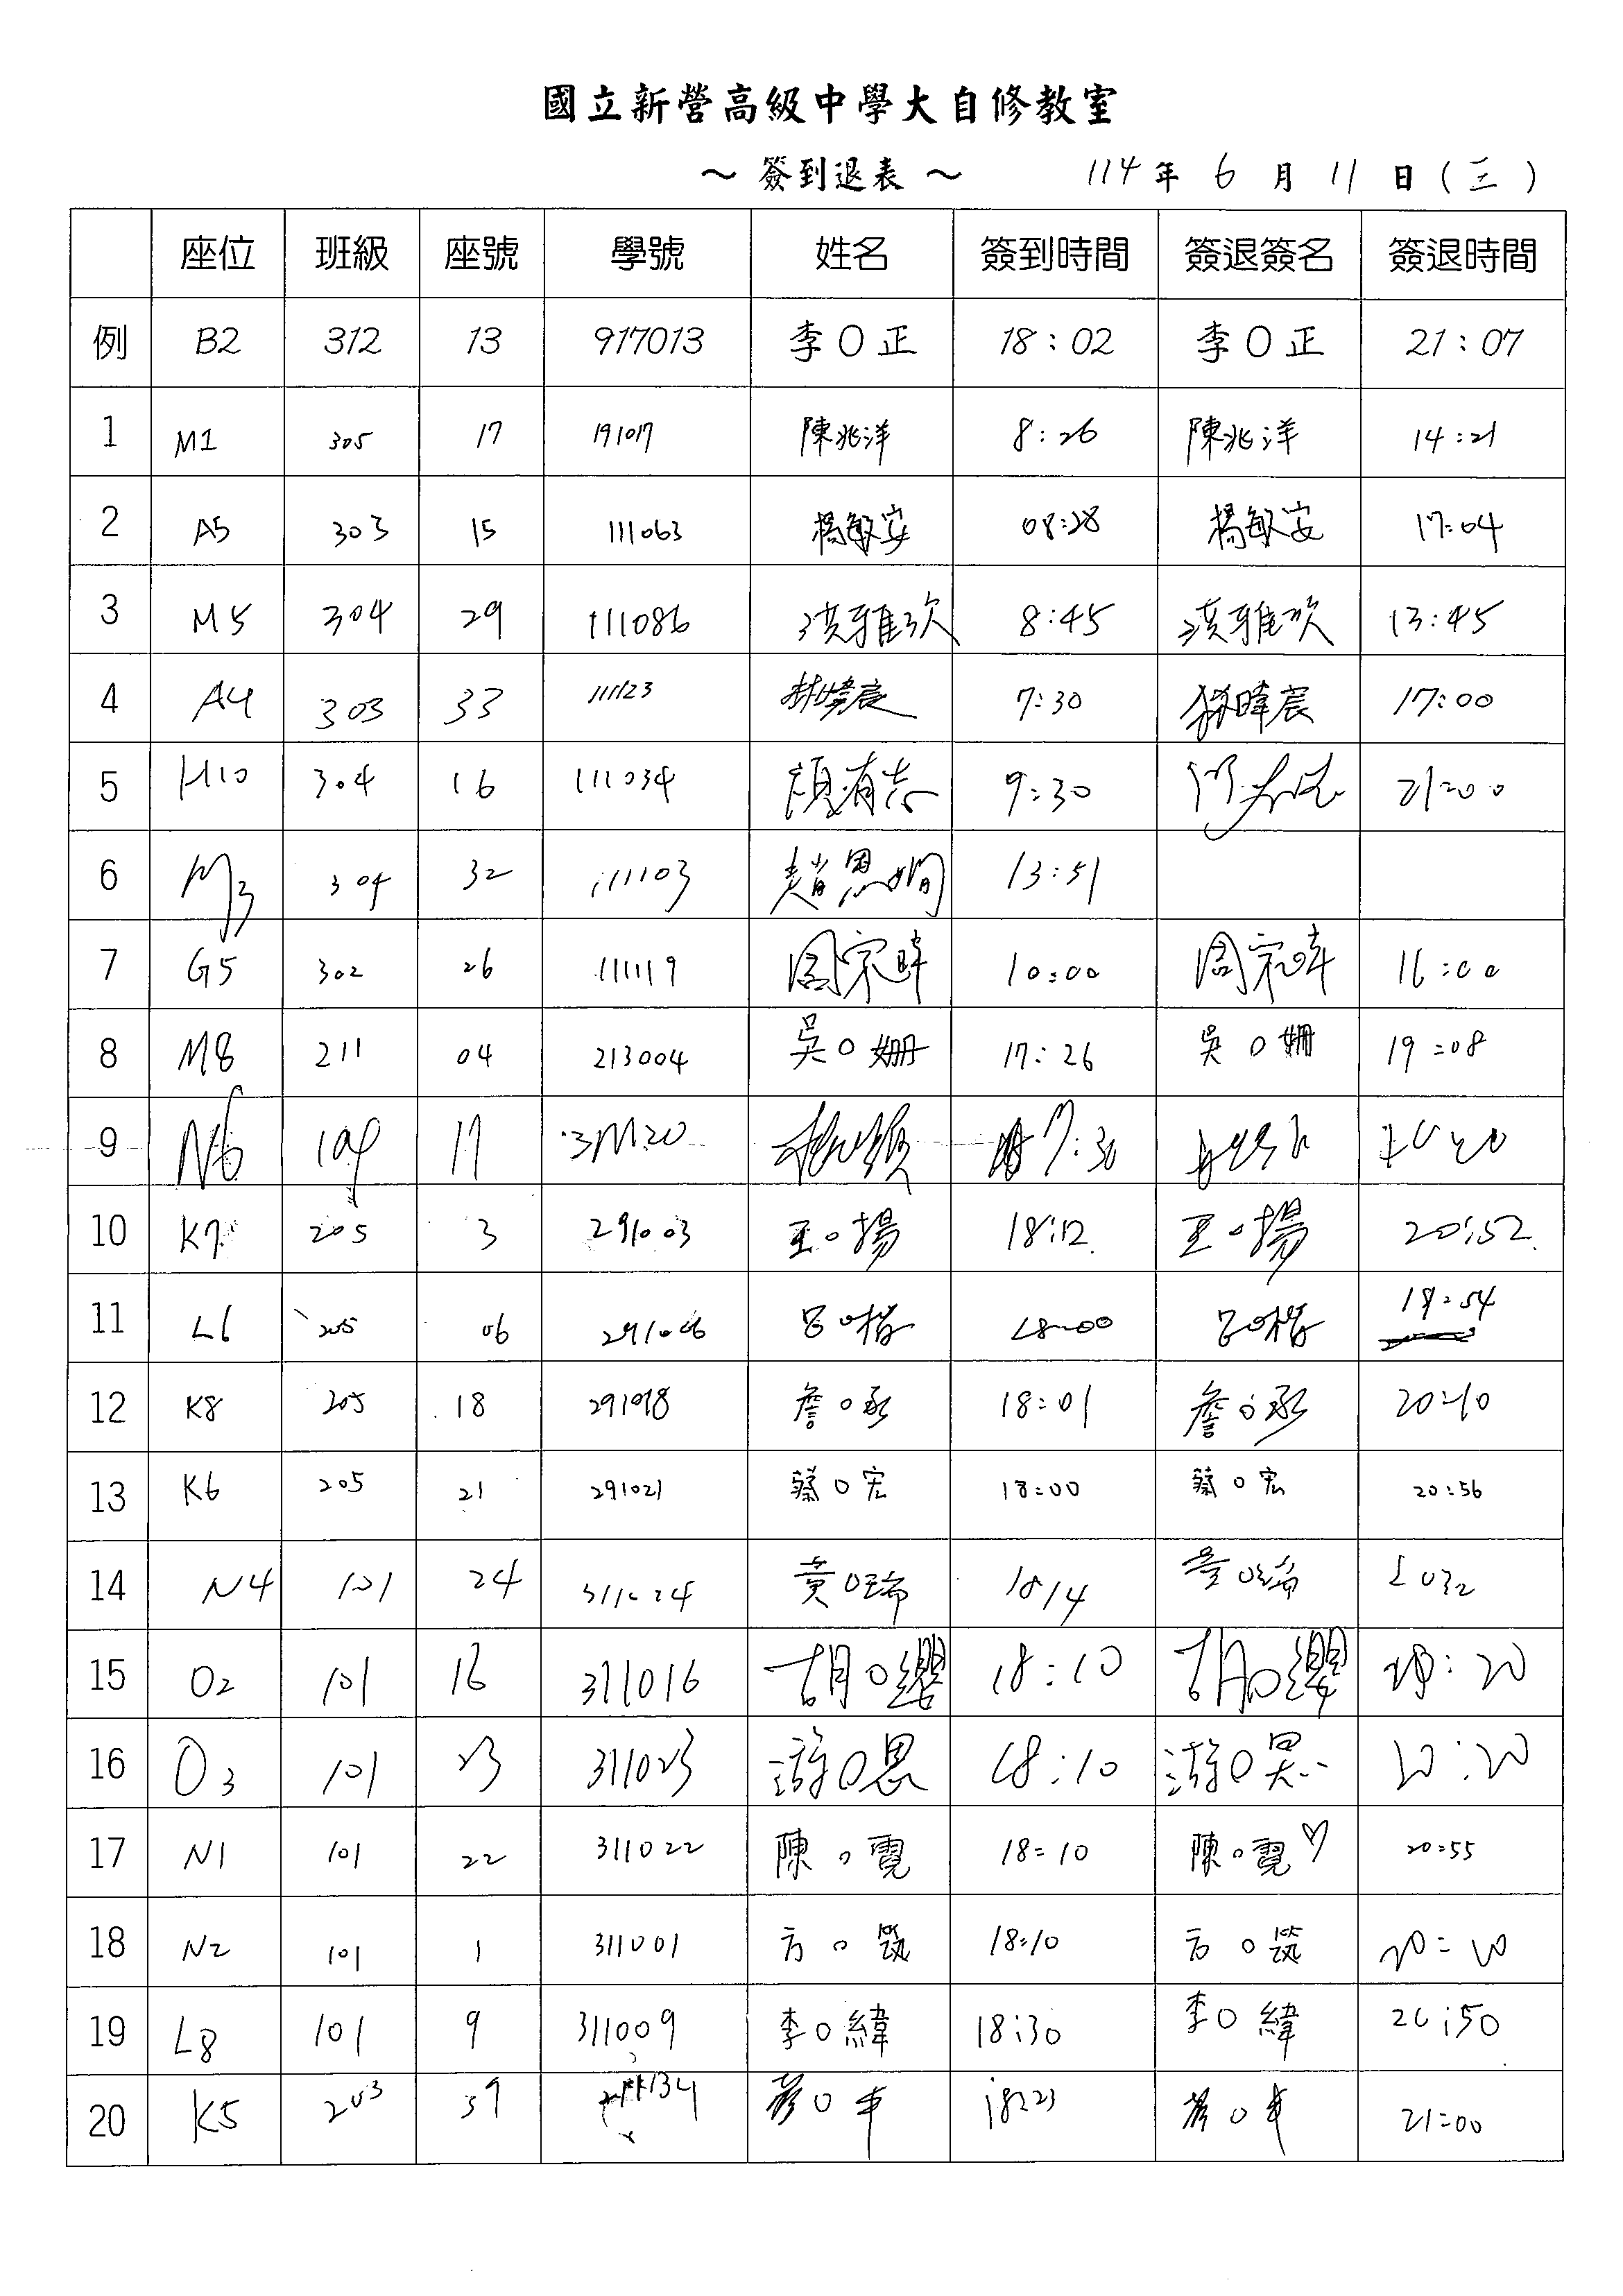 國立新營高級中學大自修教室
～ 簽到退表 ～ 114 年 6 月 11 日 (三)
座位 班級 座號 學號 姓名 簽到時間 簽退簽名 簽退時間
例 B2 312 13 917013 李O正 18:02 李O正 21:07
1 M1 305 17 191017 陳兆洋 8:26 陳兆洋 14:21
2 A5 303 15 111063 楊敏安 08:28 楊敏安 17:04
3 M5 304 29 111086 洪雅玟 8:45 洪雅玟 13:45
4 A4 303 33 111123 7:30 暐宸 17:00
5 H10 304 16 111034 有志 9:30 21:00
6 M3 304 32 111103 趙恩嫺 13:51
7 G5 302 26 111119 周宗暐 10:00 周宗暐 16:00
8 M8 211 04 213004 吳O姍 17:26 吳O姍 19:08
9 N6 109 17 17:30
10 K7 205 3 291003 王O揚 18:12 王O揚 20:52
11 L6 205 06 291006 呂O楷 18:00 呂O楷 19:54
12 K8 205 18 291018 詹O承 18:01 詹O承 20:10
13 K6 205 21 291021 蔡O宏 18:00 蔡O宏 20:56
14 N4 101 24 311024 黃O瑞 1814 黃O瑞 2032
15 O2 101 16 311016 胡O纓 18:10 胡O纓 20:20
16 O3 101 23 311023 游O恩 18:10 游O恩 20:20
17 N1 101 22 311022 陳O霓 18:10 陳O霓♡ 20:55
18 N2 101 1 311001 方O筑 18:10 方O筑 20:20
19 L8 101 9 311009 李O緯 18:30 李O緯 20:50
20 K5 203 39 18:23 21:00